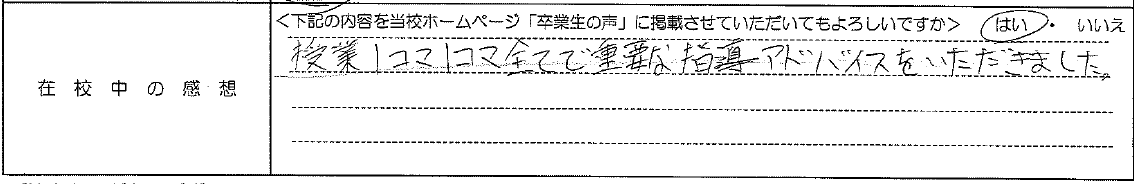 ＜下記の内容を当校ホームページ「卒業生の声」に掲載させていただいてもよろしいですか＞ はい ・ いいえ
在校中の感想
授業1コマ1コマ全てで重要な指導アドバイスをいただきました。